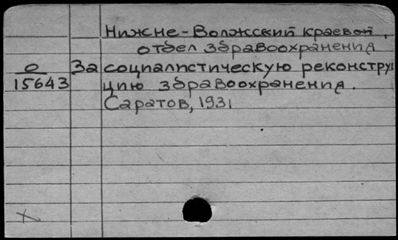 Нижне-Волжский краевой,
отдел здравоохранения
О
15643
За социалистическую реконстру
цию здравоохранения.
Саратов, 1931